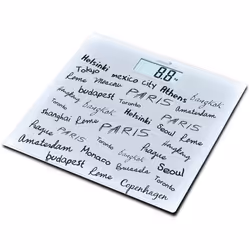 8.8
Helsinki mexico city Athens
Tokyo Bangkok
Rome Monaco PARIS Toronto
Hongkong Seoul
budapest Toronto Rome
Toronto PARIS Bangkok
shanghai Rome Seoul
Prague PARIS Amsterdam
Prague Toronto
Amsterdam Monaco Rome
budapest Brussels Toronto
Rome Copenhagen